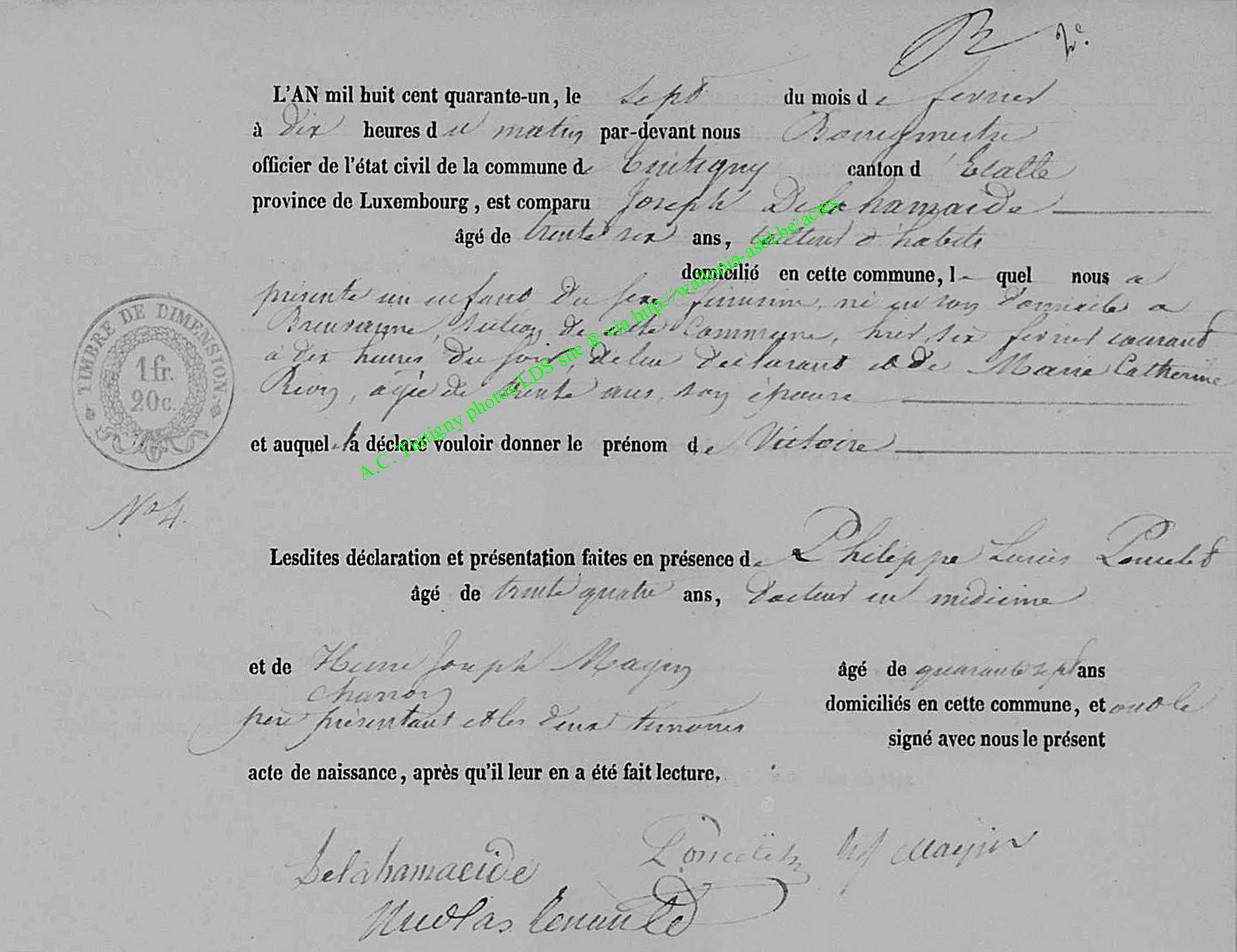 B 2e
L'AN mil huit cent quarante-un, le sept du mois de fevrier
à dix heures du matin par-devant nous Bourgmestre
officier de l'état civil de la commune de Tintigny canton d'Etalle
province de Luxembourg, est comparu Joseph Delahamaide
âgé de trente six ans, tailleur d'habits
domicilié en cette commune, lequel nous a
présenté un enfant du sexe féminin, né en son domicile a
Breuvanne, section de cette Commune, hier six fevrier courant
à dix heures du soir, de lui déclarant et de Marie Catherine
agée de trente ans, son épouse
et auquel il a déclaré vouloir donner le prénom de Victoire
TIMBRE DE DIMENSION
1 fr.
20 c.
No 4.
Lesdites déclaration et présentation faites en présence de Philippe Louis Poncelet
âgé de trente quatre ans, docteur en médecine
et de Henri Joseph Magin âgé de quarante sept ans
charron domiciliés en cette commune, et ont le
père présentant et les deux témoins signé avec nous le présent
acte de naissance, après qu'il leur en a été fait lecture.
Delahamaide Poncelet hj Magin
Nicolas
A.C. Tintigny photos LDS site ® via http://wallonia-asbl.be/actes